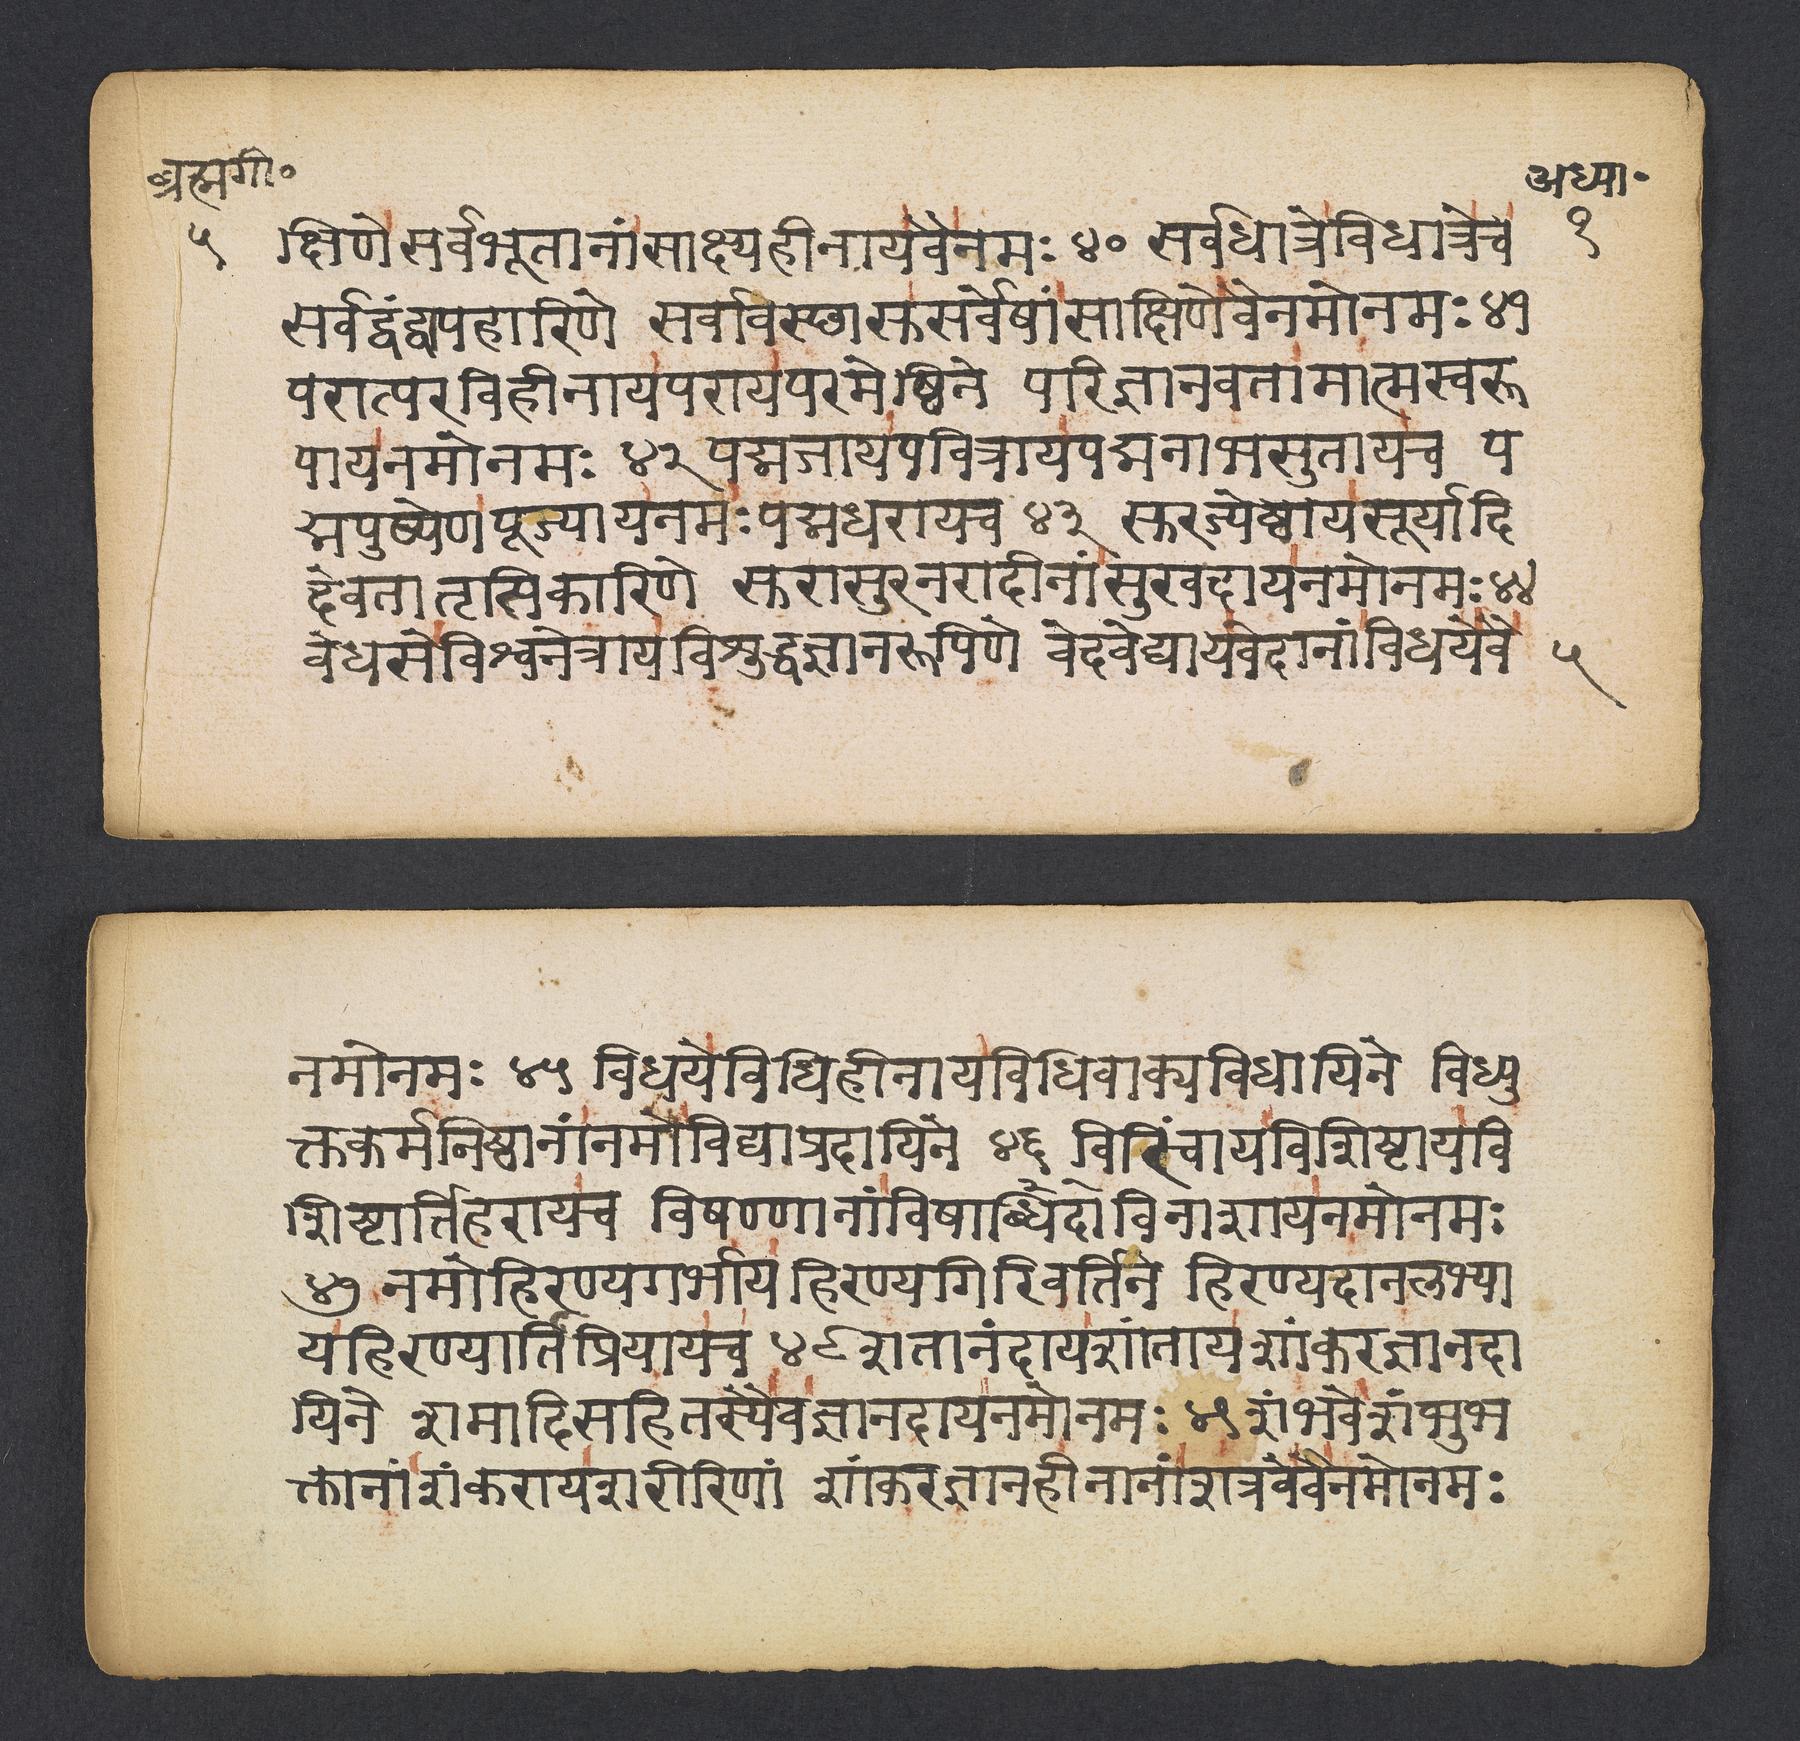 ब्रह्मगी॰
अध्या॰
५
१
क्षिणेसर्वभूतानांसाक्ष्यहीनायवैनमः ४० सर्वधात्रेविधात्रेच
सर्वद्वंद्वापहारिणे सर्वावस्छासुसर्वेषांसाक्षिणेवैनमोनमः ४१
परात्परविहीनायपरायपरमेष्ठिने परिज्ञानवतामात्मस्वरू
पायनमोनमः ४२ पद्मजायपवित्रायपद्मनाभसुतायच प
द्मपुष्पेणपूज्यायनमःपद्मधरायच ४३ सुरज्येष्ठायसूर्यादि
देवतातृप्तिकारिणे सुरासुरनरादीनांसुखदायनमोनमः ४४
वेधसेविश्वनेत्रायविशुद्धज्ञानरूपिणे वेदवेद्यायवेदानांविधयेवै
५
नमोनमः ४५ विधयेविधिहीनायविधिवाक्यविधायिने विध्यु
क्तकर्मनिष्ठानांनमोविद्याप्रदायिने ४६ विरिंचायविशिष्टायवि
शिष्टार्तिहरायच विषण्णानांविषाब्धिंदोविनाशायनमोनमः
४७ नमोहिरण्यगर्भायहिरण्यगिरिवर्तिने हिरण्यदानलभ्या
यहिरण्यार्तिप्रियायच ४८ शतानंदायशांतायशांकरज्ञानदा
यिने शमादिसहितस्यैवज्ञानदायनमोनमः ४९ शंभवेशंभुभ
क्तानांशंकरायशरीरिणां शांकरज्ञानहीनानांशत्रवेवैनमोनमः